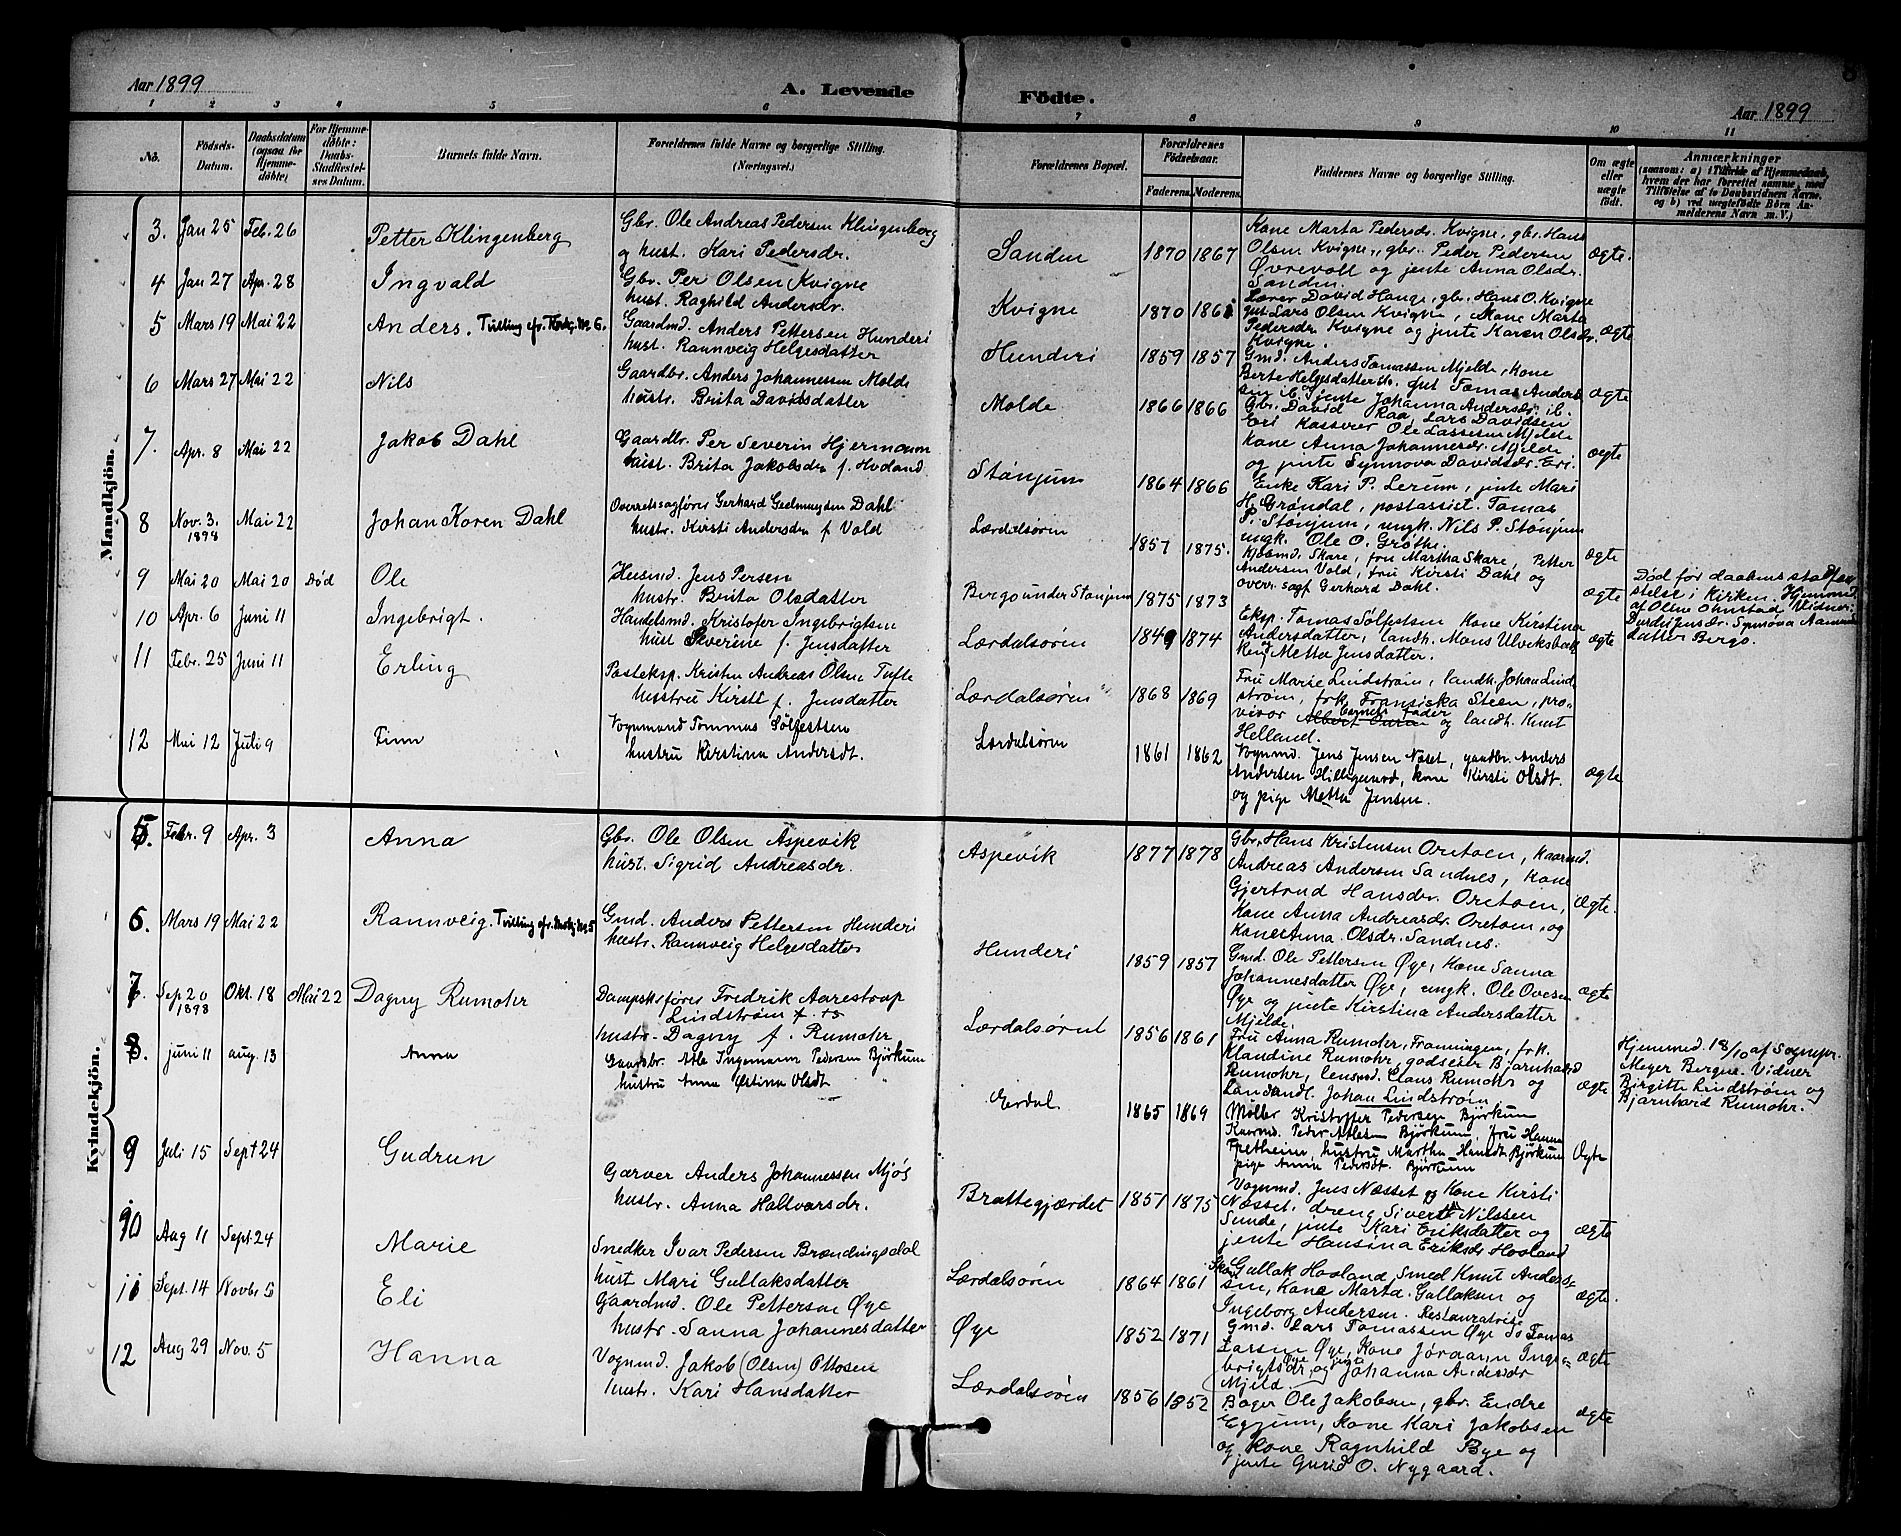 Aar 1899
A. Levende
Födte.
Aar 1899
8
1 2 3 4 5 6 7 8 9 10 11
No.
Födsels-
Datum.
Daabsdatum
(ogsaa for
Hjemme-
döbte)
For Hjemme-
döbte:
Daabs-
Stadfæstel-
ses Datum.
Barnets fulde Navn.
Forældrenes fulde Navne og borgerlige Stilling.
(Næringsvei.)
Forældrenes Bopæl.
Forældrenes
Födselsaar.
Faderens. Moderens.
Faddernes Navne og borgerlige Stilling.
Om ægte
eller
uægte
født.
Anmærkninger
(saasom: a) i Tilfælde af Hjemmedaab,
hvem der har forrettet samme, med
Tilföielse af to Daabsvidners Navne,
og b) ved uægtefödte Börn An-
melderens Navn m. V.)
Mandkjön.
3. Jan 25 Feb. 26 Petter Klingenberg
Gbr. Ole Andreas Pedersen Klingenberg
og hust. Kari Pedersdr.
Sanden 1870 1867
Kone Marta Pedersdr. Kvigne, gbr. Hans
Olsen Kvigne, gbr. Peder Pedersen
Øvrevoll og jente Anna Olsdr.
Sanden.
ægte.
4 Jan 27 Apr. 28 Ingvald
Gbr. Per Olsen Kvigne
hust. Raghild Andersdr.
Kvigne 1870 1861
Lærer David Hauge, gbr. Hans O. Kvigne
gut Lars Olsen Kvigne, Kone Marta
Pedersdr Kvigne og jente Karen Olsdr.
Kvigne.
ægte
5 Mars 19 Mai 22 Anders. Tvilling cfr. Kvkj. № 6.
Gaardmd. Anders Pettersen Hunderi
hust. Rannveig Helgesdatter
Hunderi 1859 1857
Gmd. Anders Tomassen Mjelde, kone
Berte Helgesdatter ib. gut Tomas Anders
sen ib. og jente Johanna Andersdr. ib.
ægte
6 Mars 27 Mai 22 Nils
Gaardbr. Anders Johannessen Molde
hustr. Brita Davidsdatter
Molde 1866 1866
Gbr. David Raa, Lars Davidsen
Eri Kasserer Ole Lassesen Mjelde
Kone Anna Johannesdr. Mjelde
og jente Synnøva Davidsdr. Eri.
ægte
7. Apr. 8 Mai 22 Jakob Dahl
Gaardbr. Per Severin Hjermann
hust. Brita Jakobsdr f. Hovland
Stønjum 1864 1866
Enke Kari P. Lerum, jente Mari
H. Grøndal, postassist. Tomas
P. Stønjum, ungk. Nils P. Stønjum
ungk. Ole O. Grøthe.
ægte
8 Nov. 3. 1898 Mai 22 Johan Koren Dahl
Overretssagfører Gerhard Geelmuyden Dahl
hustr. Kirsti Andersdr f. Vold
Lærdalsøren 1857 1875.
Kjøbmd. Skare, fru Martha Skare, Petter
Andersen Vold, fru Kirsti Dahl og
overr. sagf. Gerhard Dahl.
ægte
9 Mai 20 Mai 20 Død Ole
Husmd. Jens Persen
hustr. Brita Olsdatter
Bergo under Stønjum 1875 1873
ægte
Død før daabens stadfæ
stelse i Kirken. Hjemmed.
af Oline Ohnstad Vidner:
Durdei Jensdr. Synnøva Aamunds
datter Bergo.
10 Apr. 6 Juni 11 Ingebrigt.
Handelsmd. Kristofer Ingebrigtsen
hust Severine f. Jensdatter
Lærdalsøren 1849 1874
Eksp. Tomas Sølfesten Kone Kirstina
Andersdatter, landh. Mons Ulviksbak
ken og Metta Jensdatter.
ægte
11 Febr. 25 Juni 11 Erling
Posteksp. Kristen Andreas Olsen Tufte
hustru Kirsti f. Jensdatter
Lærdalsøren 1868 1869
Fru Marie Lindstrøm, landh. Johan Lind
strøm, frk. Fransiska Steen, pro-
visor Albert Buran barnets fader og landh. Knut
Helland.
12 Mai 12 Juli 9 Finn
Vognmand Tommas Sølfestsen
hustru Kirstina Andersdt.
Lærdalsøren 1861 1862
Vognmd. Jens Jensen Næset, gaardbr. Anders
Andersen Hillegunnd, kone Kirsti Olsdt.
og pige Metta Jensen.
ægte
Kvindekjön.
5. Febr. 9 Apr. 3 Anna
Gbr. Ole Olsen Aspevik
hust. Sigrid Andreasdr.
Aspevik 1877 1878
Gbr. Hans Kristensen Oretøen, Kaarmd.
Andreas Andersen Sandnes, Kone
Gjertrud Hansdr. Oretøen,
Kone Anna Andreasdr. Oretøen, og
Kone Anna Olsdr. Sandnes.
ægte.
6. Mars 19 Mai 22 Rannveig. Tvilling cfr. Mndkj № 5
Gmd. Anders Pettersen Hunderi
hustr. Rannveig Helgesdatter
Hunderi 1859 1857
Gmd. Ole Pettersen Øye, Kone Sanna
Johannesdatter Øye, ungk. Ole Ovesen
Øye og jente Kirstina Andersdatter
Mjelde.
ægte
7. Sep 20 1898 Okt. 18 Mai 22 Dagny Rumohr
Dampskfører Fredrik Aarestrup
Lindstrøm
hustr. Dagny f. Rumohr
Lærdalsøren 1856 1861
Fru Anna Rumohr, Fronningen, frk.
Klandine Rumohr, godseier Bjarnhard
Rumohr, lensmd. Claus Rumohr og
Landhandl. Johan Lindstrøm
ægte
Hjemmed. 18/10 af Sognepr.
Meyer Bergne. Vidner
Birgitte Lindstrøm og
Bjarnhard Rumohr.
8. juni 11 aug. 13 Anna
Gaardbr. Atle Ingemann Pedersen Björkum
hustru Anna Østina Olsdt
Eirdal 1865 1869
Møller Kristoffer Pedersen Björkum
Kaarmd. Peder Atlesen Björkum, fru Hanna
Fretheim, hustru Martha Hansdt Björkum
pige Anna Pedersdt. Björkum
Ægte
9 Juli 15 Sept 24 Gudrun
Garver Anders Johannessen Mjøs
hustr. Anna Hallvarsdr.
Brattegjærdet 1851 1875
Vognmd. Jens Næsset og Kone Kirsti
Næsset, dreng Sivert Nilssen
Sunde, jente Kari Eriksdatter og
jente Hansina Eriksdr Hovland
ægte
10 Aug 11 Sept 24 Marie
Snedker Ivar Pedersen Brændingsdal
hust Mari Gullaksdatter
Lærdalsøren 1864 1861
Skom. Gullak Hovland, Smed Knut Anders-
sen, Kone Marta Gullaksen og
Ingeborg Andersen. Restauratrise
ægte.
11 Sept. 14 Novbr 5 Eli
Gaardmd. Ole Petterson Øye
hustr. Sanna Johannesdatter
Øye 1852 1871
Gmd. Lars Tomassen Øye do Tomas
Larsen Øye, Kone Jøraann Inge-
brigtsdr Øye og jente Johanna Andersdr
Mjeld.
ægte
12 Aug 29 Nov. 5 Hanna
Vognmd. Jakob (Olsen) Ottosen
hustr. Kari Hansdatter
Lærdalsøren 1856 1852
Bager Ole Jakobsen, gbr. Endre
Eggjum, Kone Kari Jakobsen
og Kone Ragnhild Bye og
jente Gurid O. Nygaard.
ægte